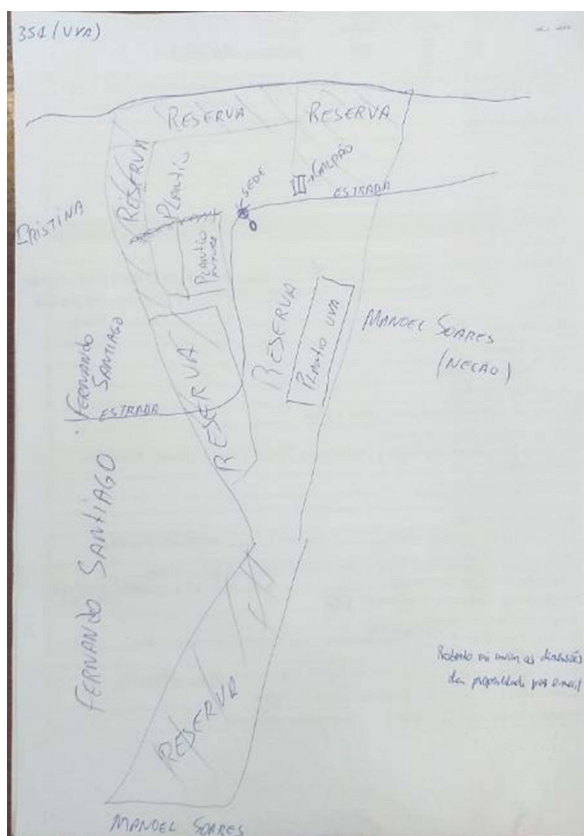 351 (UVA)
RESERVA
RESERVA
RESERVA
Plantio
SEDE
GALPÃO
ESTRADA
CRISTINA
Plantio
FUTURO
RESERVA
PLANTIO UVA
MANOEL SOARES
(NECÃO)
FERNANDO
SANTIAGO
ESTRADA
RESERVA
FERNANDO SANTIAGO
RESERVA
as dimensões
da propriedade por e-mail
MANOEL SOARES